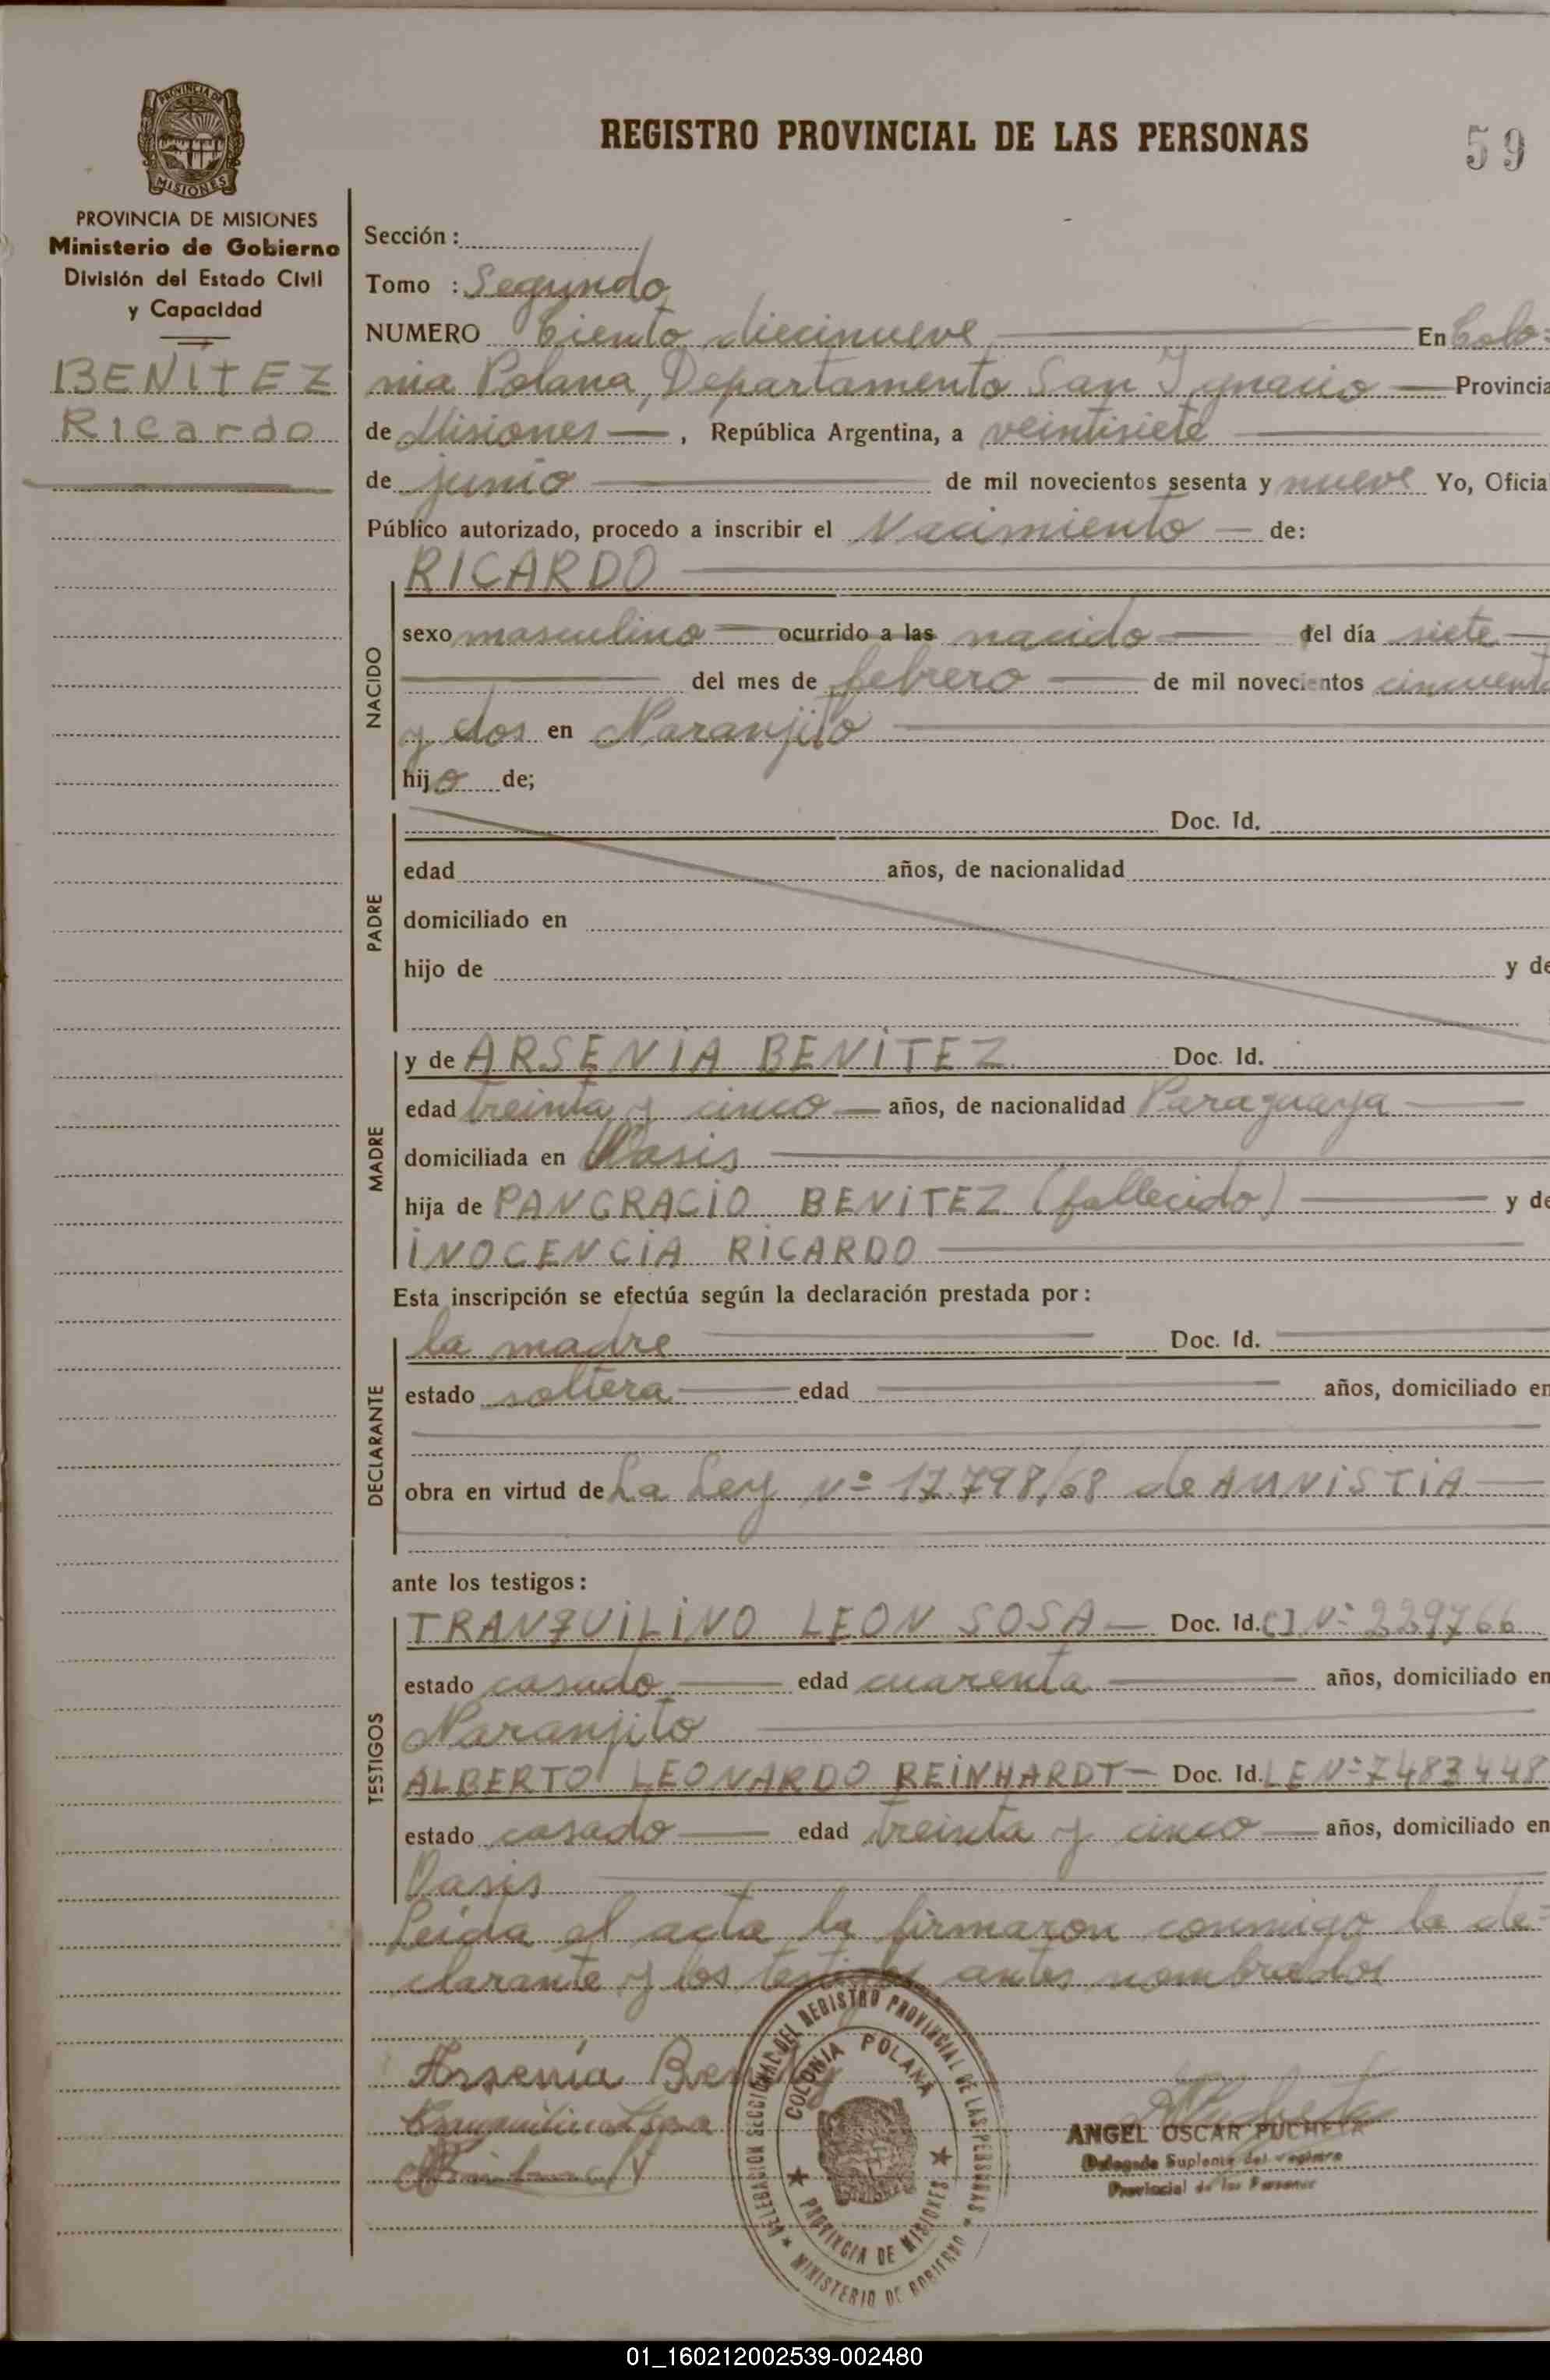 PROVINCIA DE
MISIONES
PROVINCIA DE MISIONES
Ministerio de Gobierno
División del Estado Civil
y Capacidad
BENITEZ
Ricardo
REGISTRO PROVINCIAL DE LAS PERSONAS
59
Sección :
Tomo : Segundo
NUMERO Ciento diecinueve En Colo-
nia Polana, Departamento San Ignacio Provincia
de Misiones , República Argentina, a veintisiete
de junio de mil novecientos sesenta y nueve Yo, Oficia
Público autorizado, procedo a inscribir el Nacimiento de:
NACIDO
RICARDO
sexo masculino ocurrido a las nacido del día siete
del mes de febrero de mil novecientos cincuenta
y dos en Naranjito
hijo de;
PADRE
Doc. Id.
edad años, de nacionalidad
domiciliado en
hijo de y de
MADRE
y de ARSENIA BENITEZ Doc. Id.
edad treinta y cinco años, de nacionalidad Paraguaya
domiciliada en Oasis
hija de PANGRACIO BENITEZ (fallecido) y de
INOCENCIA RICARDO
Esta inscripción se efectúa según la declaración prestada por:
DECLARANTE
la madre Doc. Id.
estado soltera edad años, domiciliado en
obra en virtud de La Ley Nº 17.798/68 de AMNISTIA
ante los testigos:
TESTIGOS
TRANQUILINO LEON SOSA Doc. Id. CI Nº 229766
estado casado edad cuarenta años, domiciliado en
Naranjito
ALBERTO LEONARDO REINHARDT Doc. Id. LE Nº 7483448
estado casado edad treinta y cinco años, domiciliado en
Oasis
Leida el acta la firmaron conmigo la de-
clarante y los testigos antes nombrados
Arsenia Benitez
DELEGACION SECCIONAL DEL REGISTRO PROVINCIAL DE LAS PERSONAS
MINISTERIO DE GOBIERNO
COLONIA POLANA
PROVINCIA DE MISIONES
ANGEL OSCAR PUCHETA
Delegado Suplente del registro
Provincial de las Personas
01_160212002539-002480